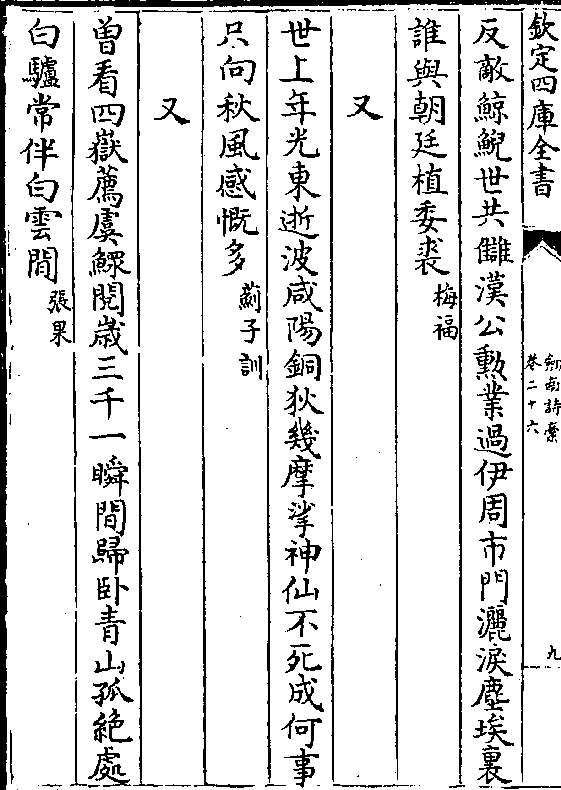 欽定四庫全書
劍南詩稾
卷二十六
九
反敵鯨鯢世共讎漢公勲業過伊周市門灑淚塵埃裏
誰與朝廷植委裘梅福
又
世上年光東逝波咸陽銅狄幾摩挲神仙不死成何事
只向秋風感慨多薊子訓
又
曽看四嶽薦虞鰥閱歳三千一瞬間歸卧青山孤絶處
白驢常伴白雲間張果